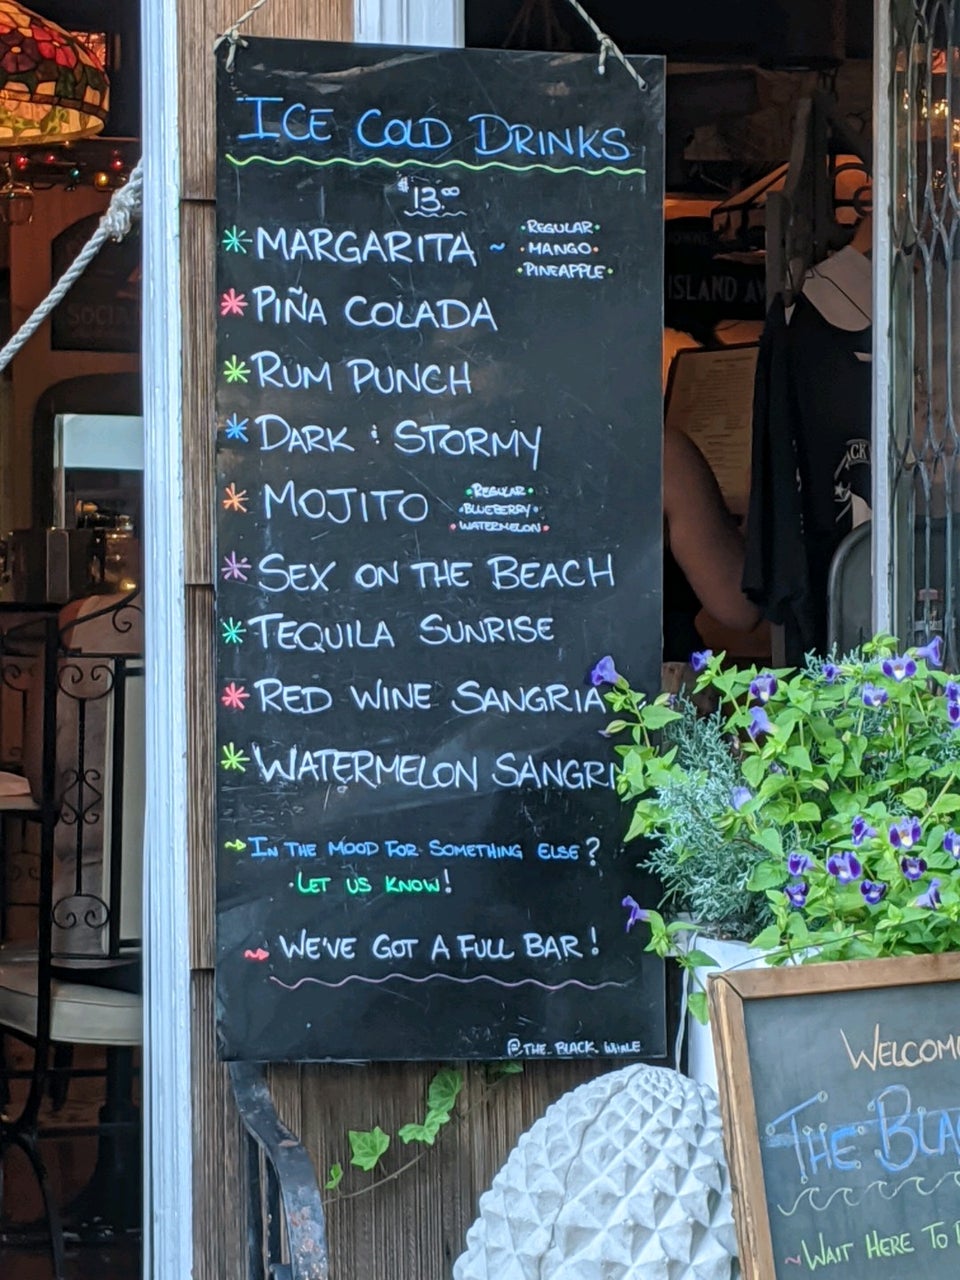 ICE COLD DRINKS
$13.00
MARGARITA ~ •REGULAR•
•MANGO•
•PINEAPPLE•
PIÑA COLADA
RUM PUNCH
DARK & STORMY
MOJITO •REGULAR•
•BLUEBERRY•
•WATERMELON•
SEX ON THE BEACH
TEQUILA SUNRISE
RED WINE SANGRIA
WATERMELON SANGRI
IN THE MOOD FOR SOMETHING ELSE?
•LET US KNOW!
WE'VE GOT A FULL BAR!
@THE_BLACK_WHALE
ISLAND AV
WELCOM
THE BLA
~WAIT HERE TO